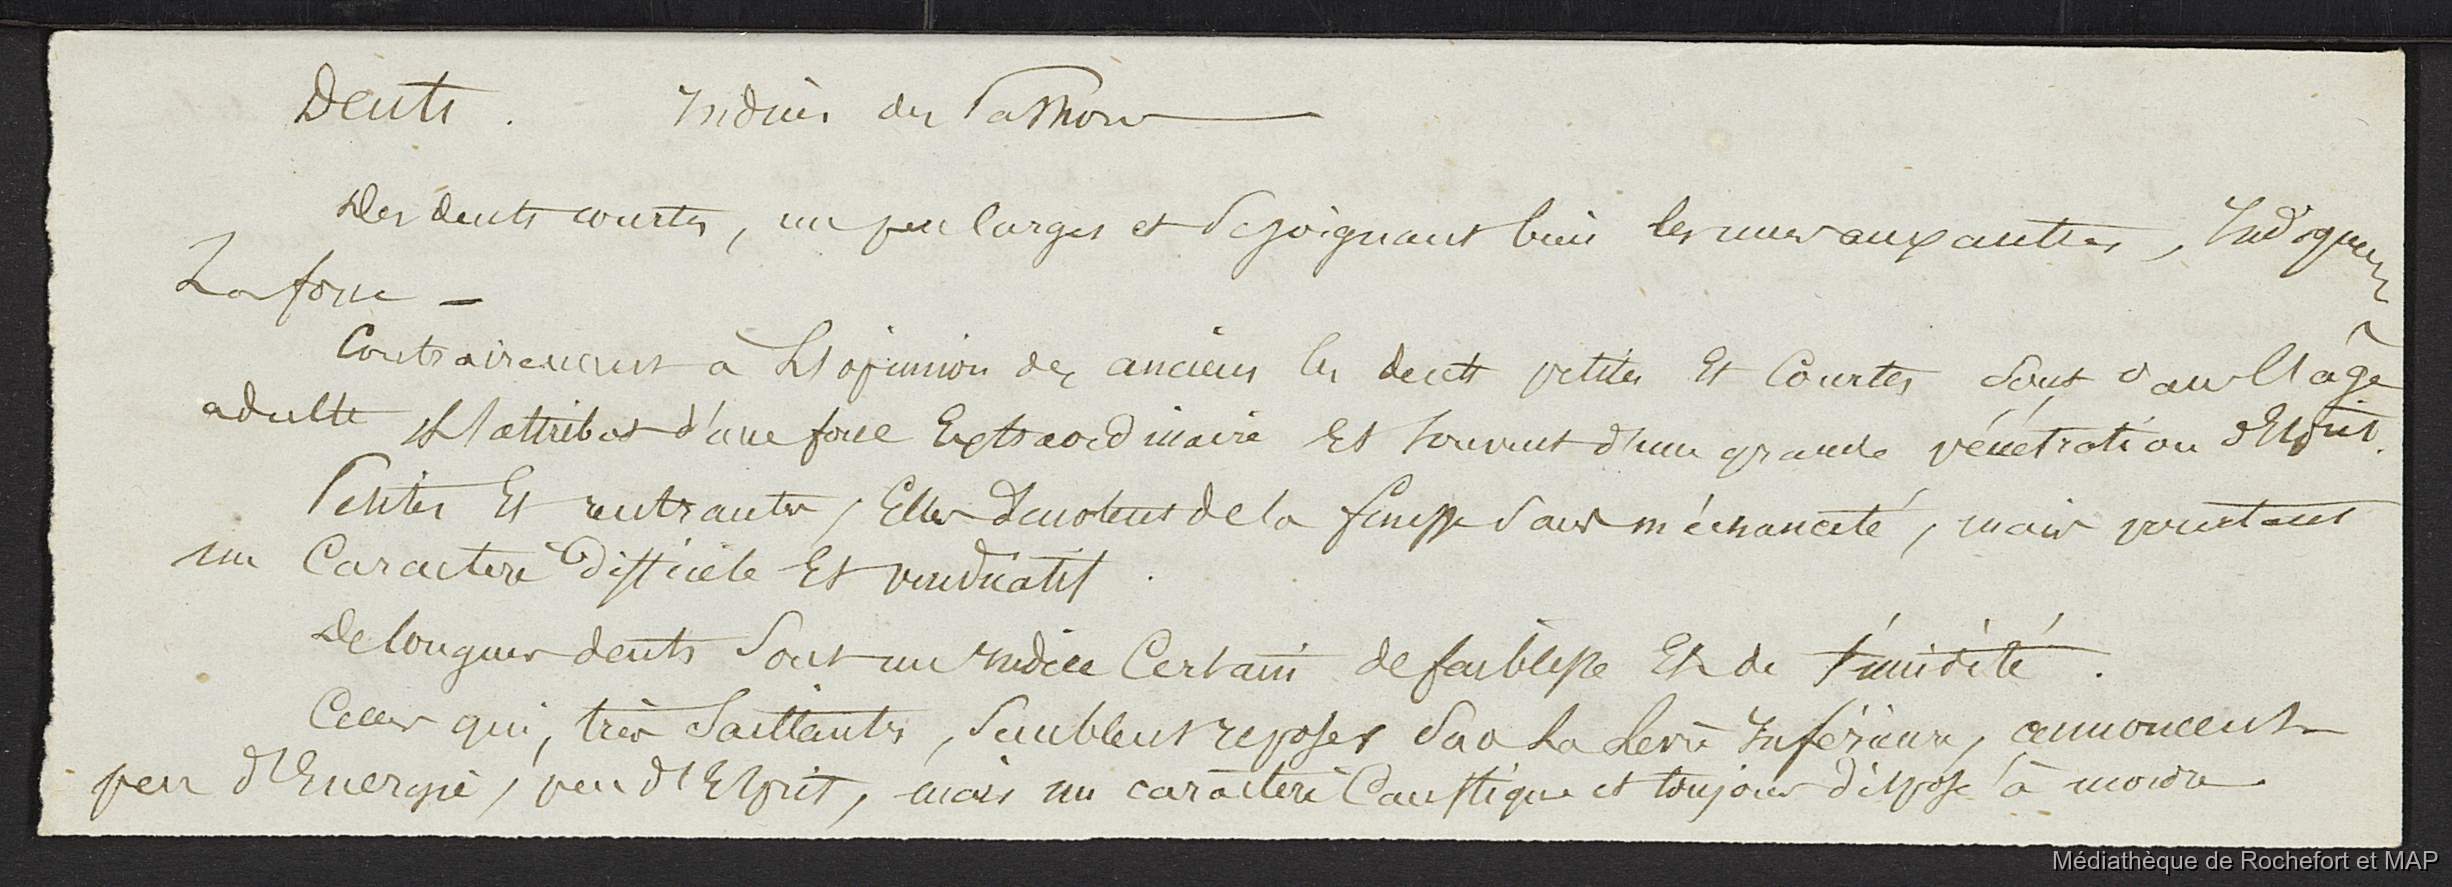 Dents. Indices des Passions
Des dents courtes, un peu larges et se joignant bien les unes aux autres, Indiquent
La force -
Contrairement à L'opinion des anciens les dents petites Et Courtes sont dans l'âge
adulte L'attribut d'une force Extraordinaire Et souvent d'une grande pénétration d'Esprit.
Petites Et rentrantes, Elles Dénotent de la finesse sans méchanceté, mais pourtant
un Caractère Difficile Et vindicatif.
De longues dents sont un Indice Certain de faiblesse Et de timidité.
Celles qui, très saillantes, semblent reposer sur La Levre Inférieure, annoncent
peu d'Energie, peu d'Esprit, mais un caractère Caustique et toujours disposé à mordre.
Médiathèque de Rochefort et MAP